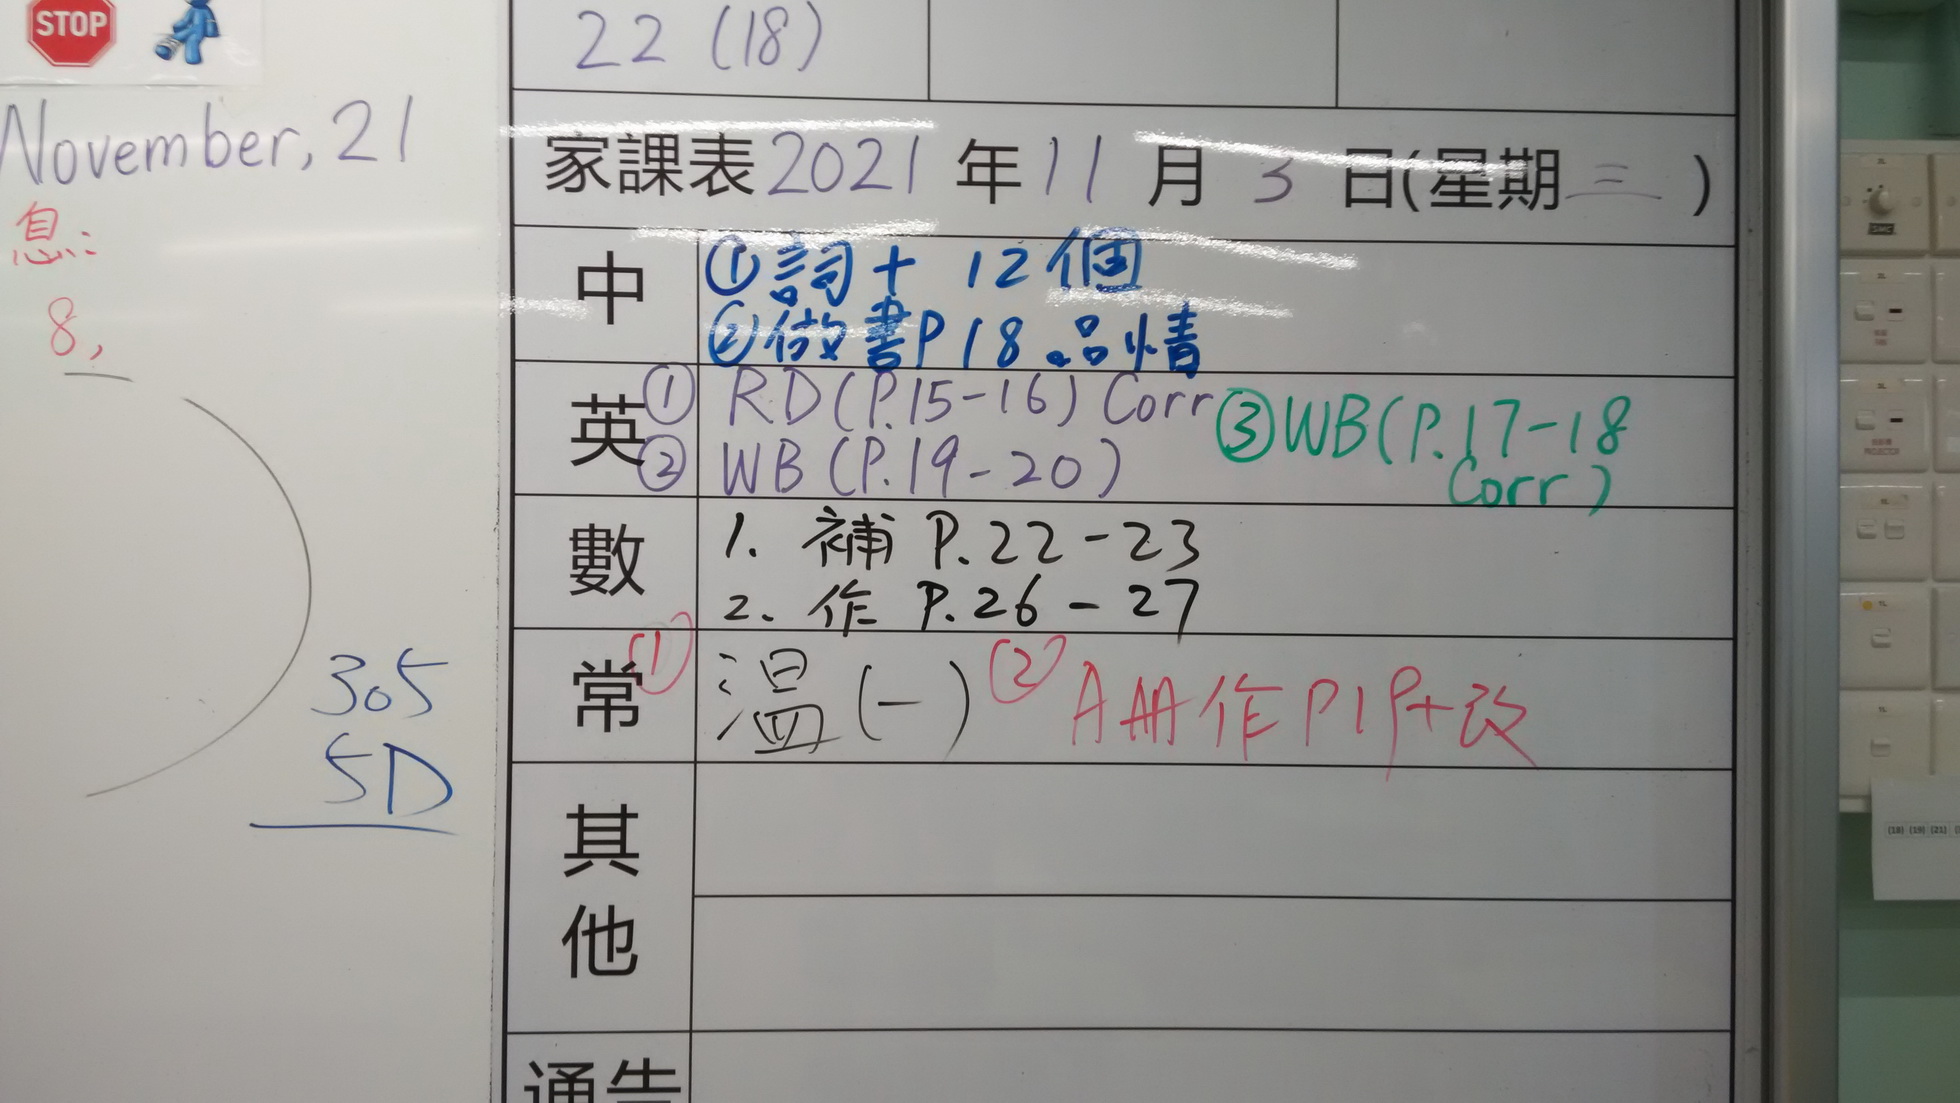 STOP
22 (18)
November, 21
息:
8,
305
5D
家課表 2021 年 11 月 3 日(星期 三 )
中
①詞十 12個
②做書P18.品情
英
① RD(P.15-16) Corr
② WB(P.19-20)
③WB(P.17-18
Corr)
數
1. 補 P.22-23
2. 作 P.26-27
常
① 溫(一) ② A冊作P19+改
其他
通告
(18) (19) (21)